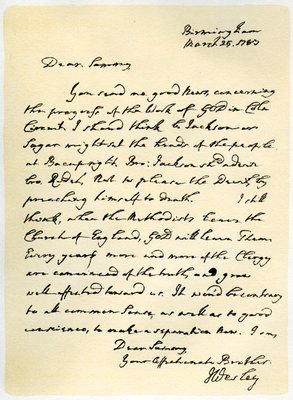 Birmingham
March 25, 1783
Dear Sammy
You send me good News, concerning
the progress of the Work of GOD in Coln
Circuit. I should think Br Jackson or
Sagar might at the heads of the people
at Bacup bring Bro: Jackson should advise
bro. Not to please the Devil, by
preaching himself to death. I still
think, when the Methodists leave the
Church of England, GOD will leave Them.
Every year more and more of the Clergy
are convinced of the truth, and grow
well-affected toward us. It would be contrary
to all common Sense, as well as to good
conscience, to make a separation now. I am,
Dear Sammy,
Your Affectionate Brother
JWesley